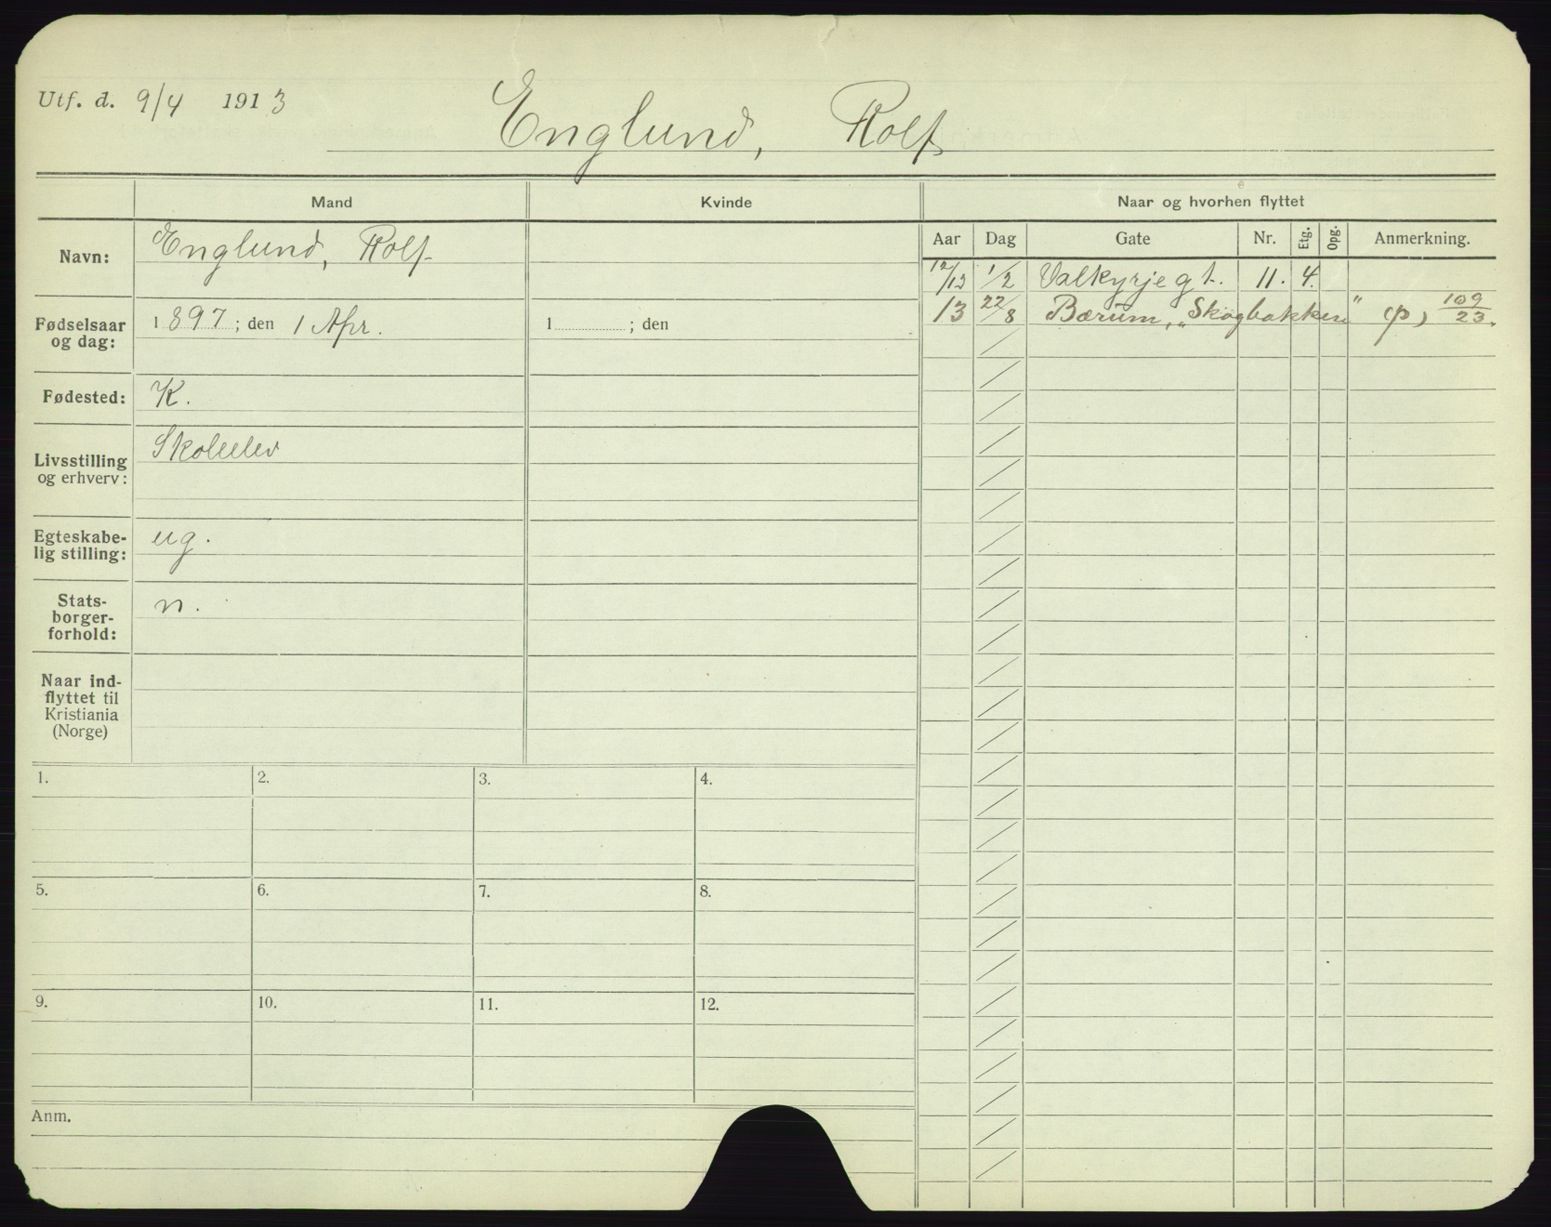 Utf. d. 9/4 1913
Englund, Rolf
Mand Kvinde Naar og hvorhen flyttet
Navn: Englund, Rolf
Aar Dag Gate Nr. Etg. Opg. Anmerkning.
12/13 1/2 Valkyrjegt. 11. 4.
13 22/8 Bærum, „Skogbakken" (p) 109/23.
Fødselsaar og dag: 1897; den 1 Apr. 1 ; den
Fødested: K.
Livsstilling og erhverv: Skoleelev
Egteskabe-
lig stilling: ug.
Stats-
borger-
forhold: n.
Naar ind-
flyttet til
Kristiania
(Norge)
1. 2. 3. 4.
5. 6. 7. 8.
9. 10. 11. 12.
Anm.